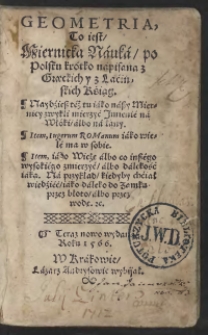 GEOMETRIA,
To iest/
Miernicka Nauká/ po
Polsku krotko napisana z
Greckich y z Lacin-
skich Kſiąg.
¶ Naydzieſz też tu iáko náſzy Mier-
nicy zwykli mierzyć Imienie ná
Włoki/ albo ná łany.
¶ Item, Iugerum ROManum iáko wie-
le ma w sobie.
¶ Item, iáko Wieże álbo co inſzego
wysokiego zmierzyć/ álbo dalekość
iáką. Ná przykłád/ kiedyby chciał
wiedzieć/ iáko dáleko do Zamku
przez błoto/ álbo przez
wodę. ꝛc.
¶ Teraz nowo wydana
Roku 1566.
W Krákowie/
Łázarz Andryſowic wybijał.
BIBLIOTEKA
J.W.D.